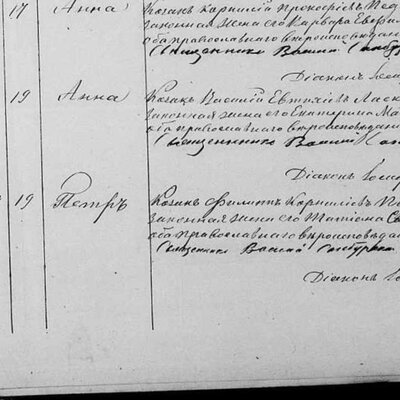 17 Анна Козакъ Корнилій Прокофіевъ
законная жена его Варвара
оба православнаго вѣроисповѣданія
Священникъ Василій
Діаконъ
19 Анна Козакъ Василій Евтихіевъ
законная жена его Екатерина
оба православнаго вѣроисповѣдан
Священникъ Василій
Діаконъ
19 Петръ Козакъ Филиппъ Корниліевъ
законная жена его Татіана
оба православнаго вѣроисповѣдан
Священникъ Василій
Діаконъ